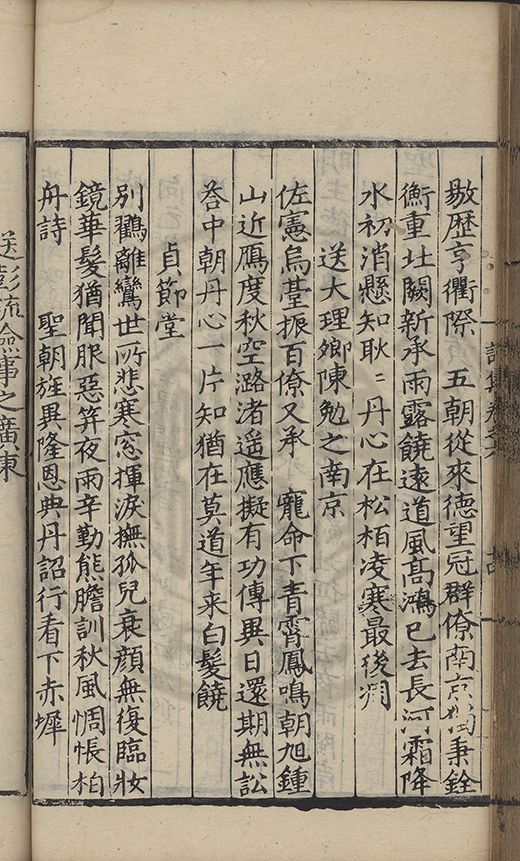 敭歷亨衢際　五朝從來德望冠群僚南京獨秉銓
衡重北闕新承雨露饒遠道風髙鴻已去長河霜降
水初消懸知耿〻丹心在松栢凌寒最後凋
送大理卿陳勉之南京
佐憲烏臺振百僚又承　寵命下青霄鳳鳴朝旭鍾
山近鴈度秋空潞渚遥應擬有功傳異日還期無訟
荅中朝丹心一片知猶在莫道年来白髮饒
貞節堂
別鸖離鸞世所悲寒窓揮淚撫孤兒衰顔無復臨妝
鏡華髮猶聞服惡笄夜雨辛勤熊膽訓秋風惆悵栢
舟詩　聖朝旌異隆恩典丹詔行看下赤墀
送彭流僉事之廣東